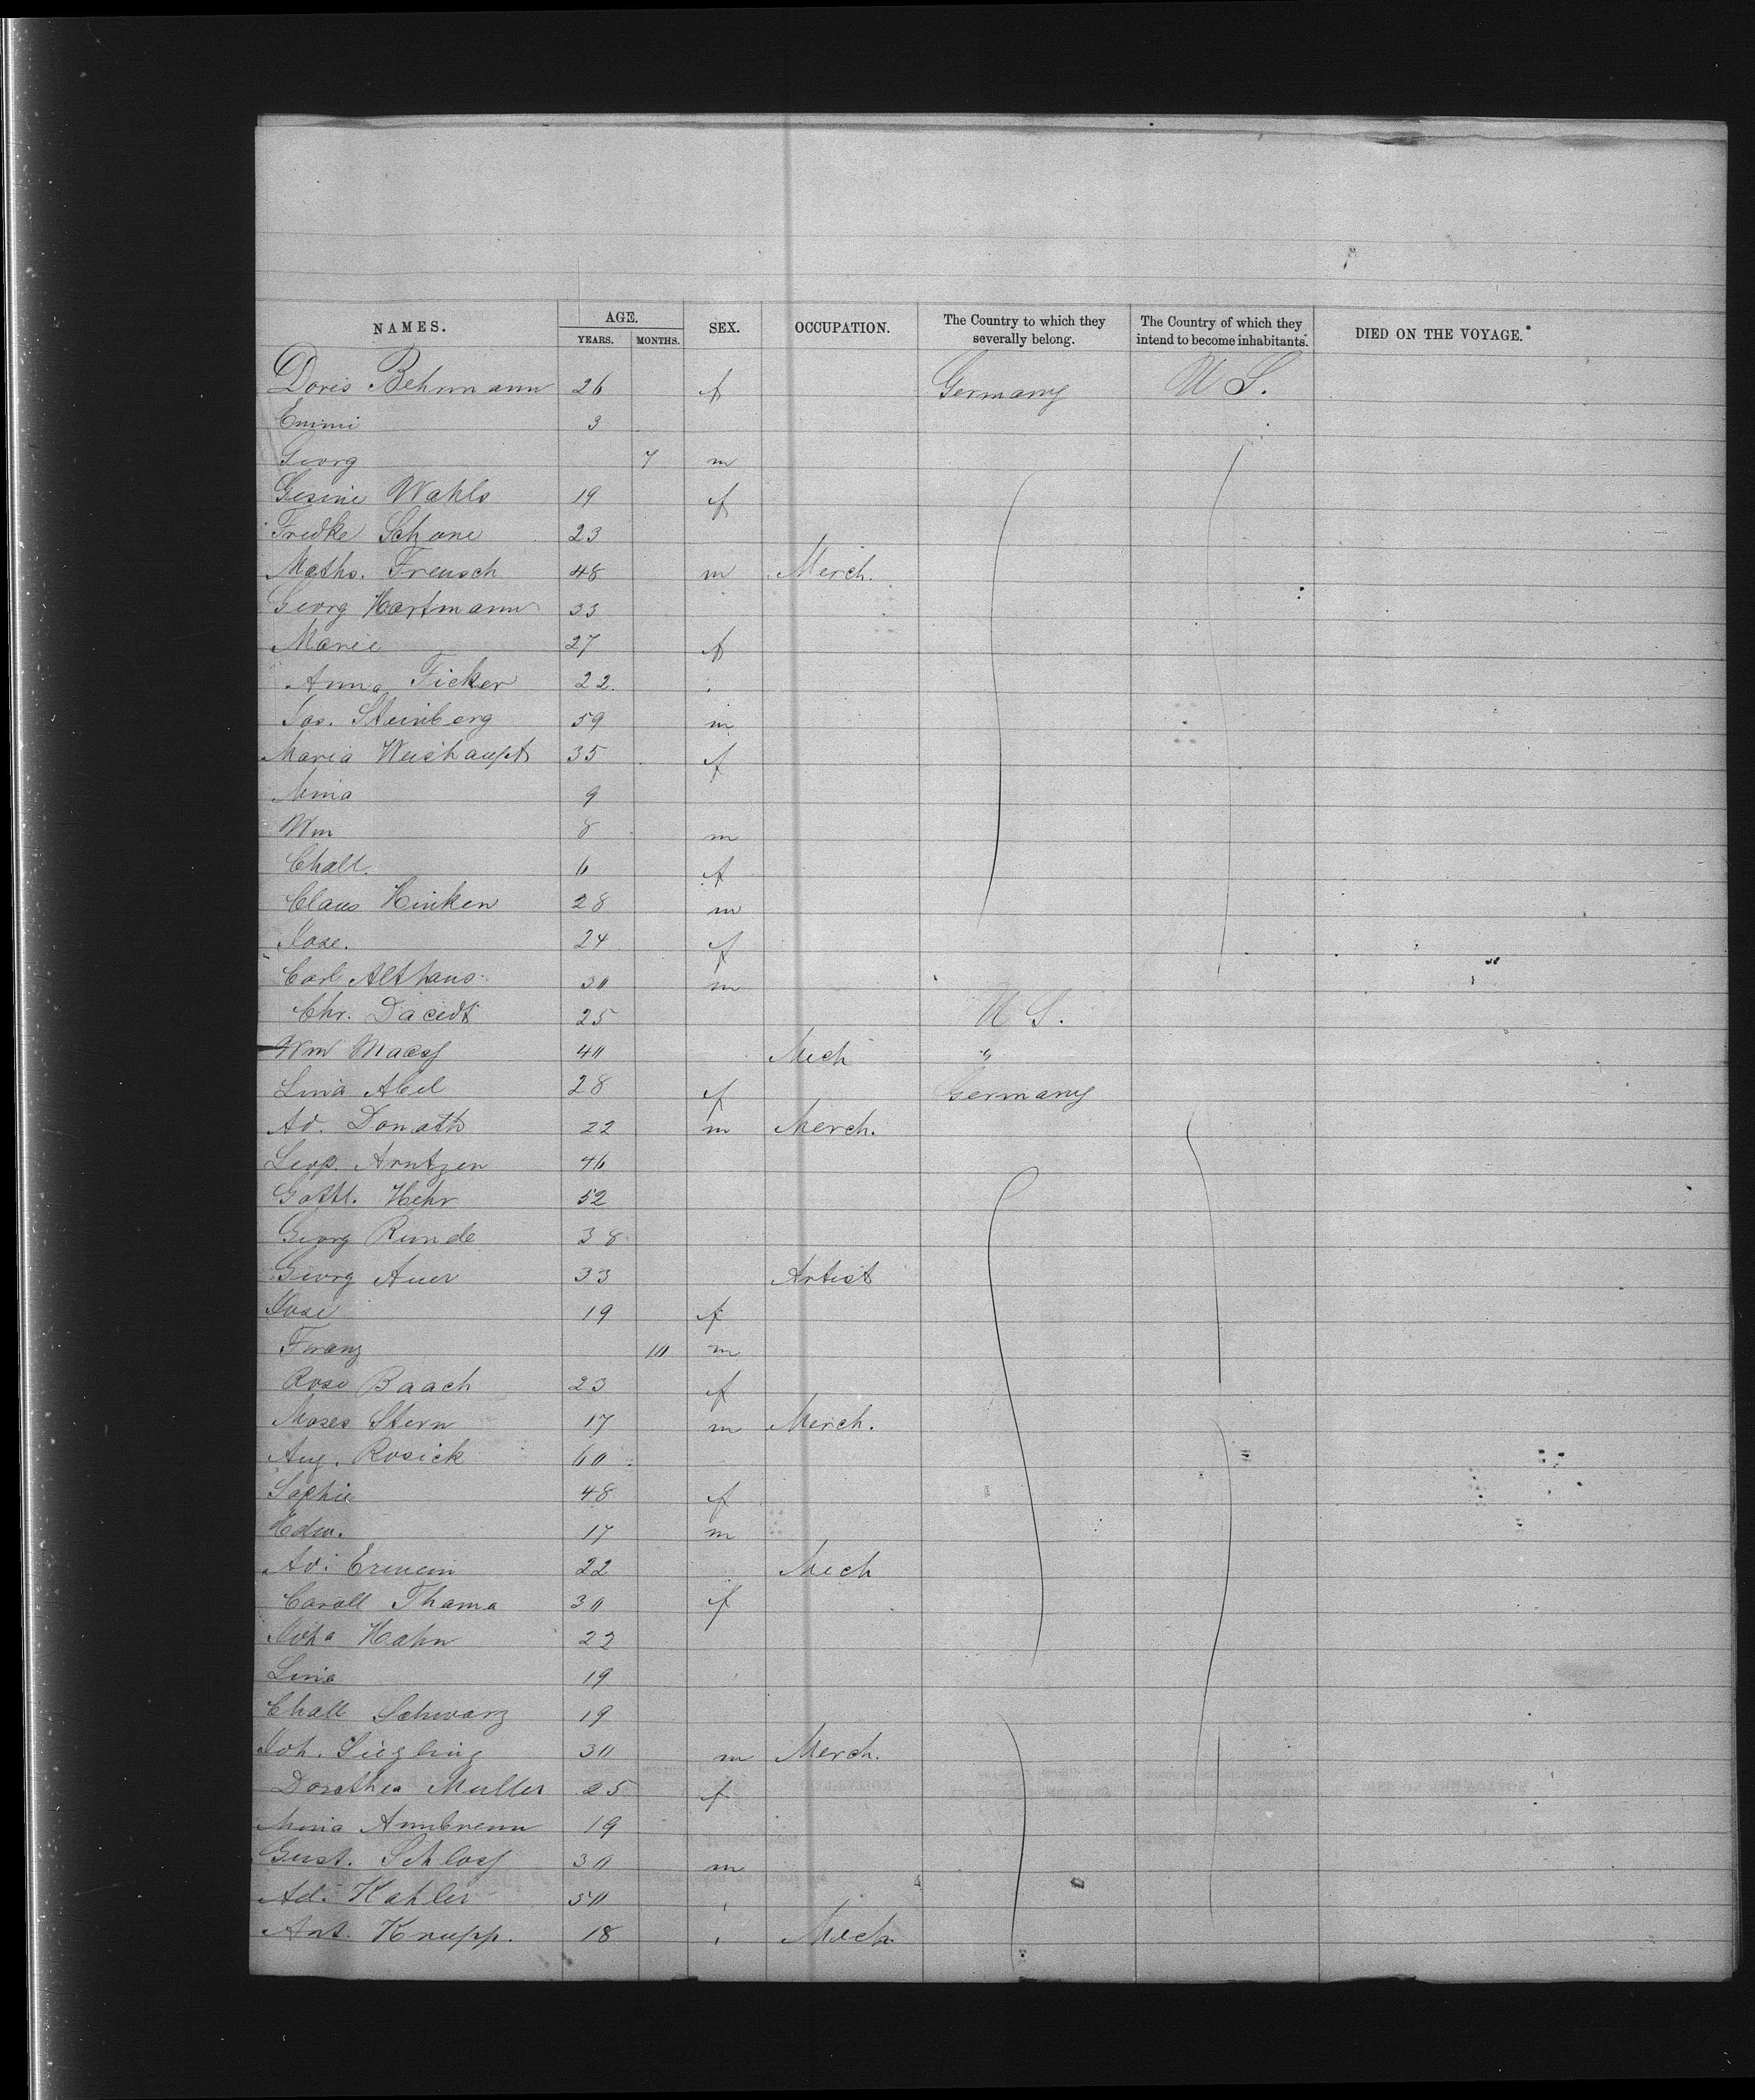 NAMES. AGE. SEX. OCCUPATION. The Country to which they severally belong. The Country of which they intend to become inhabitants. DIED ON THE VOYAGE.
YEARS. MONTHS.
Doris Behrmann 26 f Germany U S.
Emmi 3
Georg 7 m
Gesine Wahls 19 f
Fredke Schone 23
Maths. Freusch 48 m Merch.
Georg Hartmann 33
Marie 27 f
Anna Ficker 22
Jos. Steinberg 59 m
Maria Weishaupt 35 f
Mina 9
Wm 8 m
Chatt. 6 f
Claus Hinken 28 m
Rose. 24 f
Carl Althaus 30 m
Chr. 25 U S.
Wm Maass 40 Mech "
Lina Abel 28 f Germany
Ad. Donath 22 m Merch.
Leop. Arntzen 46
Gottl. Hehr 52
Georg Runde 38
Georg Auer 33 Artist
Rose 19 f
Franz 10 m
Rosa Baach 23 f
Moses Stern 17 m Merch.
Aug. Rosick 60
Sophie 48 f
Edw. 17 m
Ad. 22 Mech
Caroll Thoma 30 f
Hahn 22
Lina 19
Chatt Schwarz 19
Joh. Siegling 30 m Merch.
Dorathea Muller 25 f
Mina 19
Gust. Schloss 30 m
Ad. Kahler 50
Ant. Knupp. 18 Mech